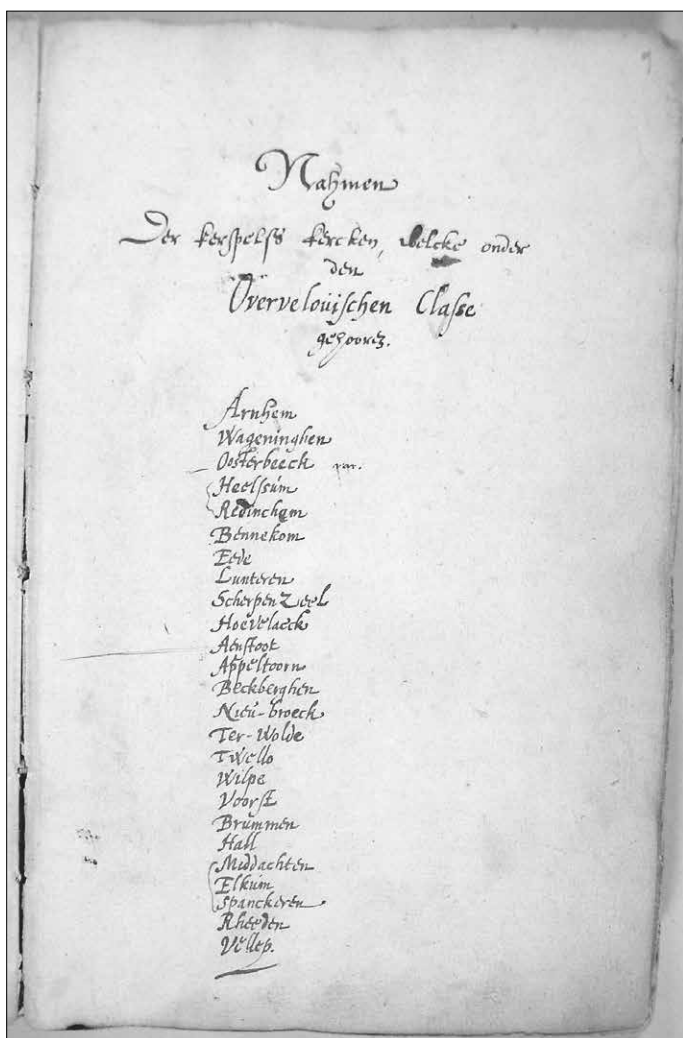 9
Nahmen
Der kerspelss kercken, welcke onder
den
Overveloüischen Classe
gehooren.
Arnhem
Wageninghen
Oosterbeeck
Heelssüm
Redinchem
Bennekom
Eede
Lunteren
Scherpenzeel
Hoevelaeck
Aenstoot
Appeltoorn
Beckberghen
Nieü-broeck
Ter-Wolde
Twello
Wilpe
Voorst
Brümmen
Hall
Middachten
Elküm
Spanckeren
Rheeden
Vellep.